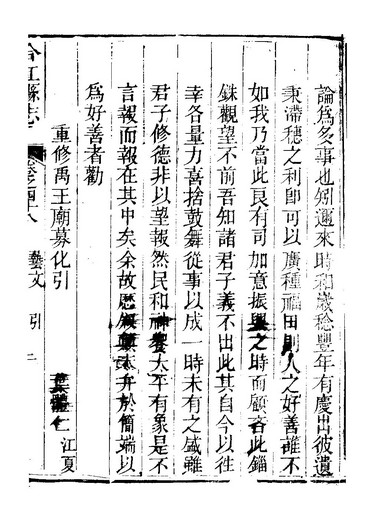 論爲多事也矧邇來時和歲稔豐年有慶出彼遺
秉滯穗之利卽可以廣種福田則人之好善誰不
如我乃當此良有司加意振興之時而顧吝此錙
銖觀望不前吾知諸君子義不出此其自今以徃
幸各量力喜捨鼓舞從事以成一時未有之盛雖
君子修德非以望報然民和神饗太平有象是不
言報而報在其中矣余故歷叙顚末弁於簡端以
爲好善者勸
重修禹王廟募化引
仁 江夏
合江縣志
藝文 引 二